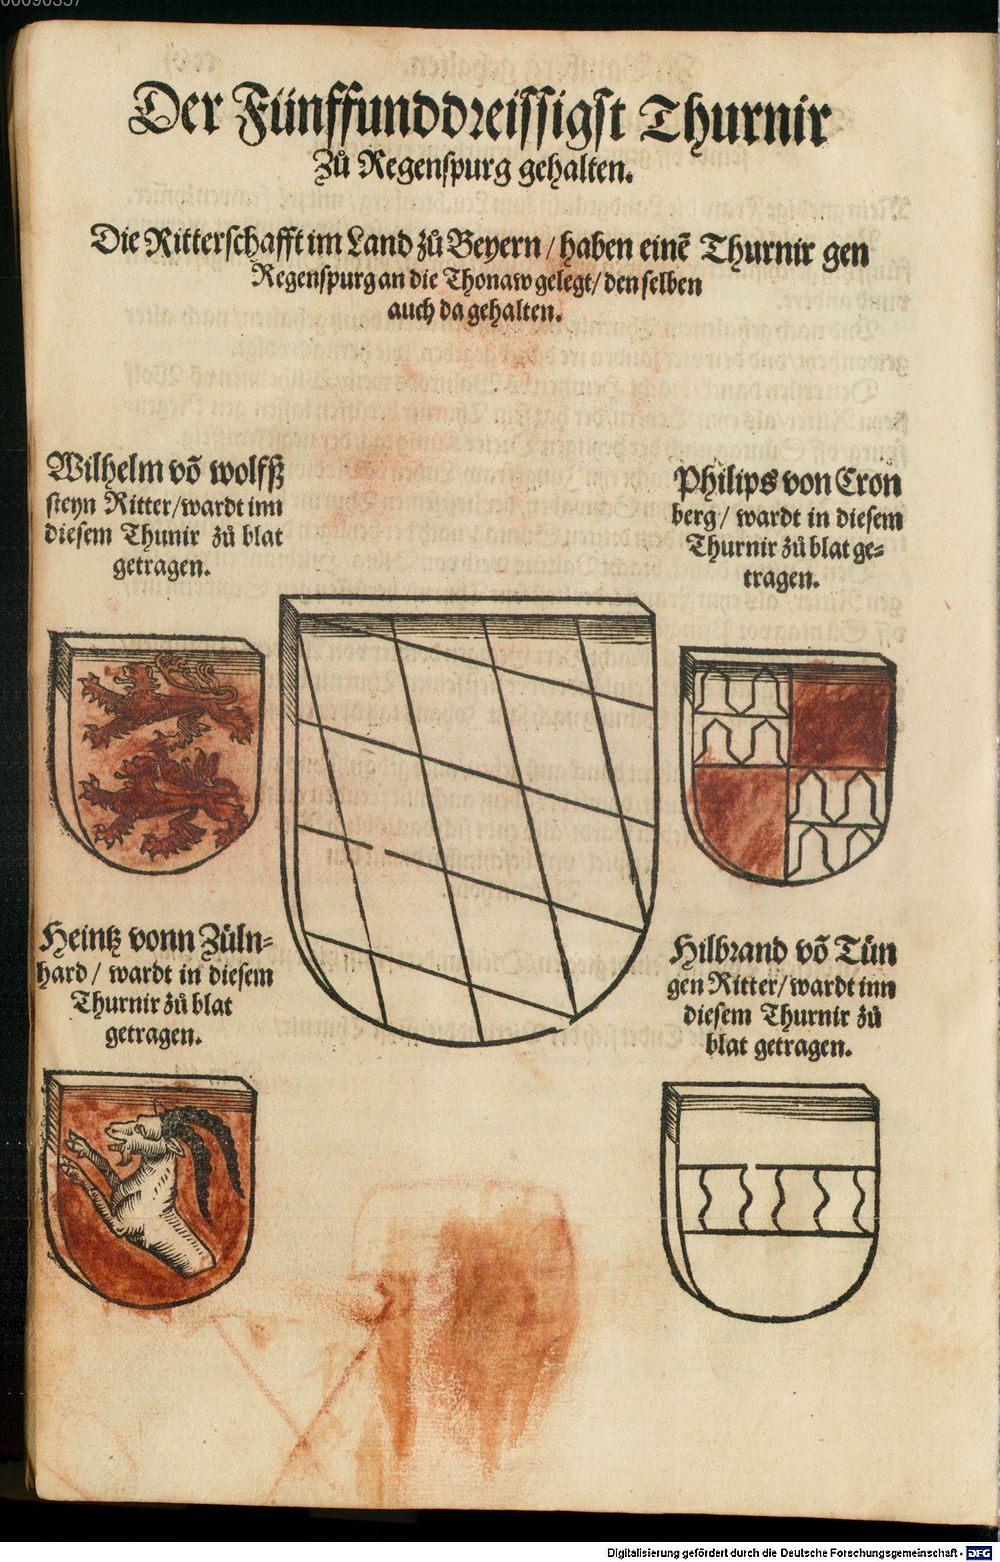 00090357
Der Fünffunddreissigst Thurnir
Zů Regenspurg gehalten.
Die Ritterschafft im Land zů Beyern / haben einē Thurnir gen
Regenspurg an die Thonaw gelegt / den selben
auch da gehalten.
Wilhelm võ wolfß
steyn Ritter / wardt inn
diesem Thunir zů blat
getragen.
Philips von Cron
berg / wardt in diesem
Thurnir zů blat ge=
tragen.
Heintz vonn Züln=
hard / wardt in diesem
Thurnir zů blat
getragen.
Hilbrand võ Tün
gen Ritter / wardt inn
diesem Thurnir zů
blat getragen.
Digitalisierung gefördert durch die Deutsche Forschungsgemeinschaft - DFG